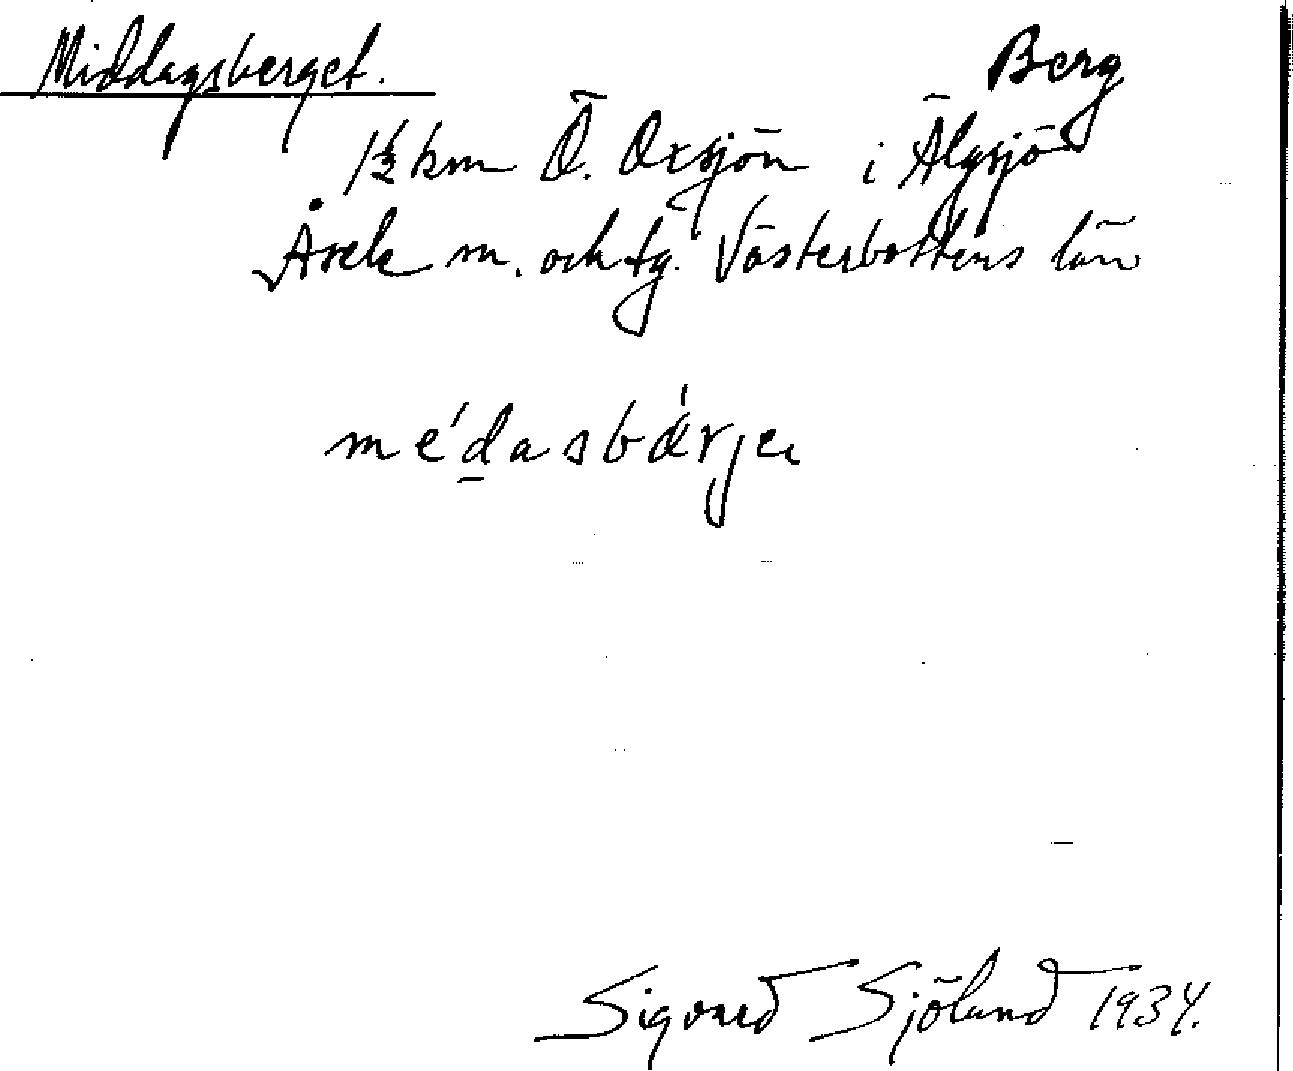 Middagsberget. Berg
1½ km Ö. Oxsjön i Älgsjö
Åsele m. och tg. Västerbottens län
mé́dasbǽrjeı
Sigvard Sjölund 1934.